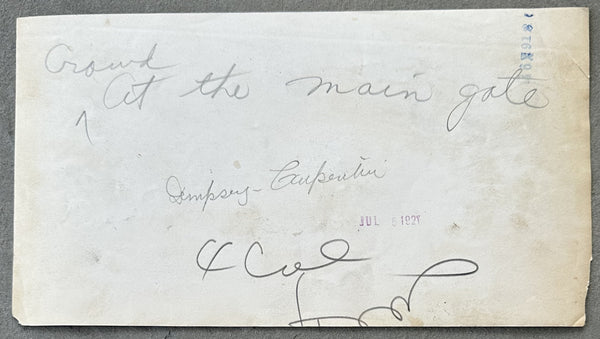 Crowd
At the main gate
Dempsey - Carpentier
JUL 5 1921
4 Col